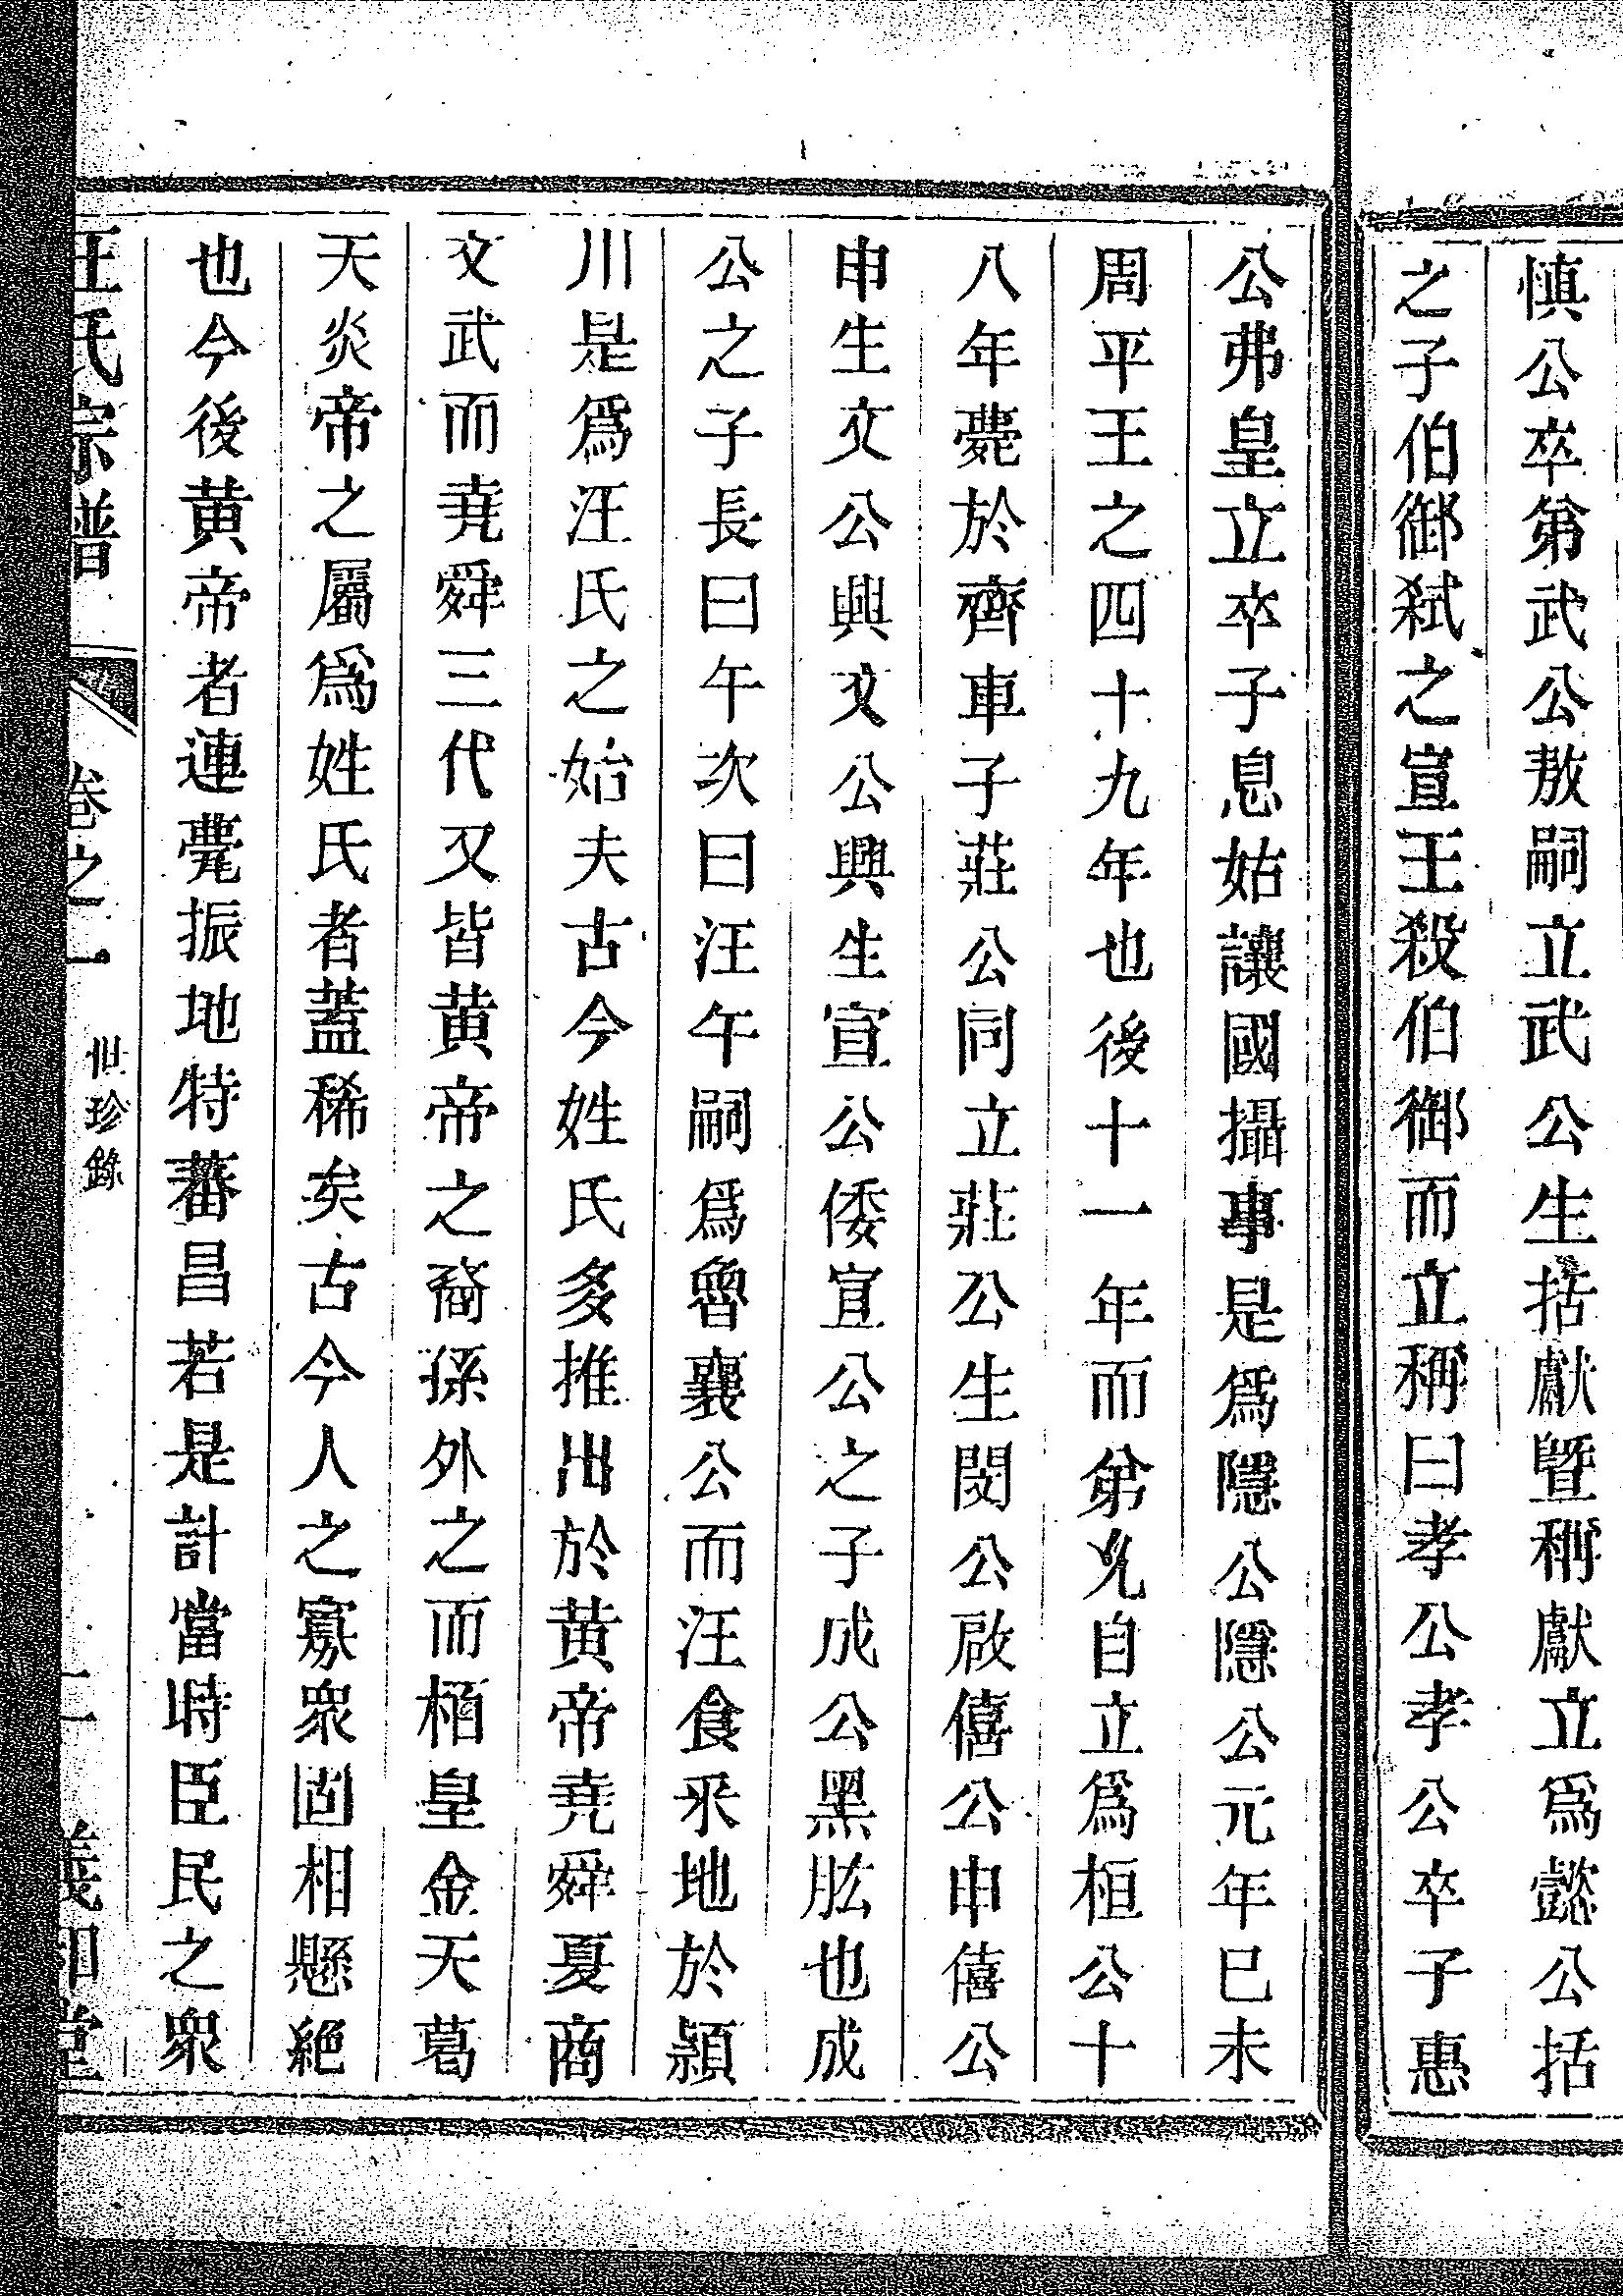 慎公卒弟武公敖嗣立武公生括獻暨稱獻立爲懿公括
之子伯御弑之宣王殺伯御而立稱曰孝公孝公卒子惠
公弗皇立卒子息姑讓國攝事是爲隱公隱公元年巳未
周平王之四十九年也後十一年而弟允自立爲桓公十
八年薨於齊車子莊公同立莊公生閔公啟僖公申僖公
申生文公興文公興生宣公倭宣公之子成公黑肱也成
公之子長曰午次曰汪午嗣爲魯襄公而汪食采地於潁
川是爲汪氏之始夫古今姓氏多推出於黄帝堯舜夏商
文武而堯舜三代又皆黄帝之裔孫外之而栢皇金天葛
天炎帝之屬爲姓氏者蓋稀矣古今人之寡衆固相懸絶
也今後黄帝者連甍振地特蕃昌若是計當時臣民之衆
汪氏宗譜
卷之一
世珍錄
二
義和堂